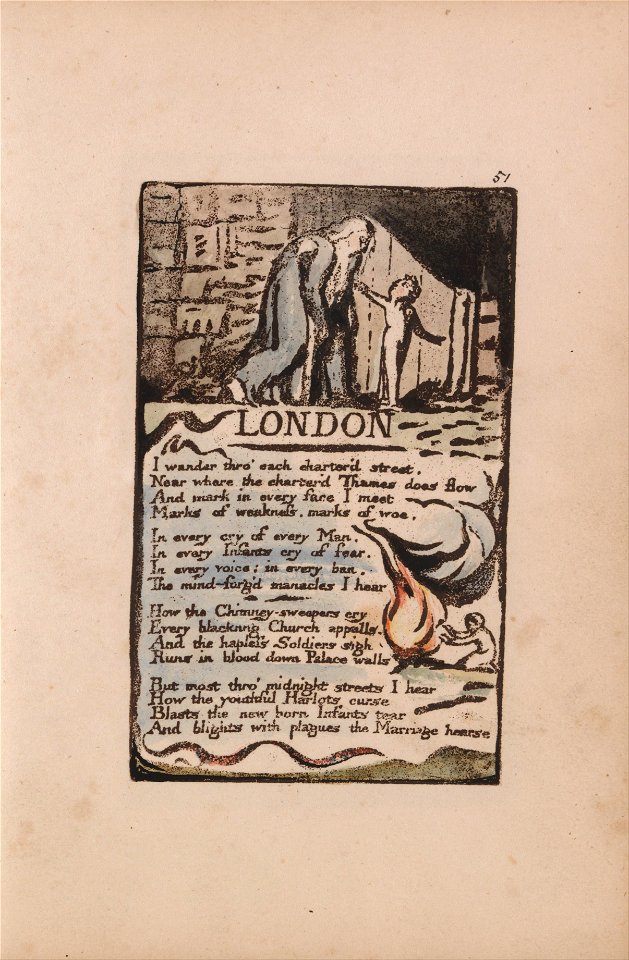 51
LONDON
I wander thro' each charter'd street,
Near where the charter'd Thames does flow
And mark in every face I meet
Marks of weakness, marks of woe.
In every cry of every Man,
In every Infants cry of fear,
In every voice; in every ban,
The mind-forg'd manacles I hear
How the Chimney-sweepers cry
Every blackning Church appalls,
And the hapless Soldiers sigh
Runs in blood down Palace walls
But most thro' midnight streets I hear
How the youthful Harlots curse
Blasts the new born Infants tear
And blights with plagues the Marriage hearse